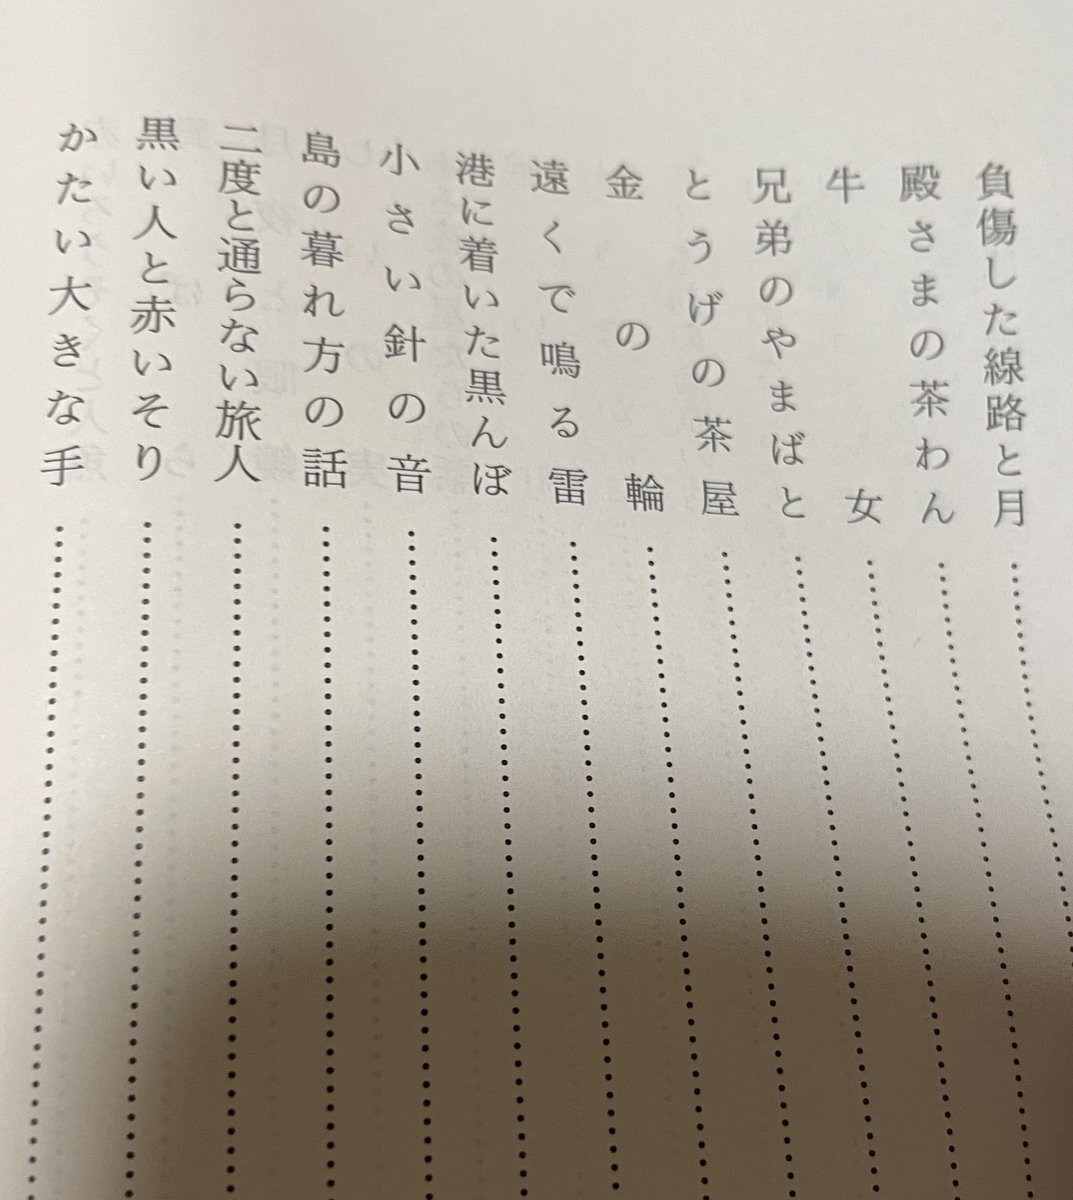 負傷した線路と月
殿さまの茶わん
牛女
兄弟のやまばと
とうげの茶屋
金の輪
遠くで鳴る雷
港に着いた黒んぼ
小さい針の音
島の暮れ方の話
二度と通らない旅人
黒い人と赤いそり
かたい大きな手